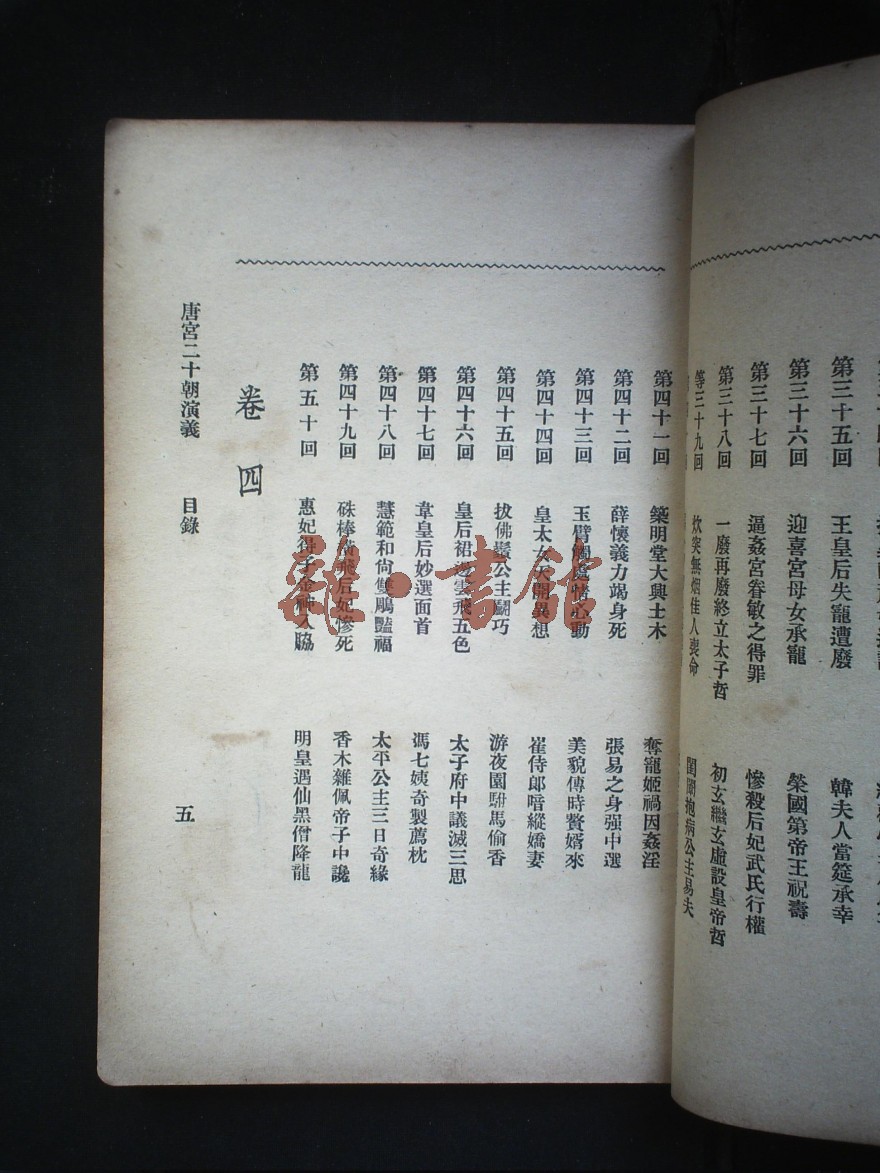 第三十五回 王皇后失寵遭廢 韓夫人當筵承幸
第三十六回 迎喜宮母女承寵 榮國第帝王祝壽
第三十七回 逼姦宮眷敏之得罪 慘殺后妃武氏行權
第三十八回 一廢再廢終立太子哲 初玄繼玄虛設皇帝哲
第三十九回 炊突無烟佳人喪命 閨闥抱病公主易夫
第四十一回 築明堂大興土木 奪寵姬禍因姦淫
第四十二回 薛懷義力竭身死 張易之身强中選
第四十三回 玉臂觸處情心動 美貌傳時贅婿來
第四十四回 皇太女天開異想 崔侍郎喑縱嬌妻
第四十五回 拔佛鬚公主鬬巧 游夜園駙馬偷香
第四十六回 皇后裙邊雲飛五色 太子府中議滅三思
第四十七回 韋皇后妙選面首 馮七姨奇製薦枕
第四十八回 慧範和尙雙鵰豔福 太平公主三日奇緣
第四十九回 硃棒橫飛后妃慘死 香木雜佩帝子中讒
第五十回 惠妃得子金神入脇 明皇遇仙黑僧降龍
卷四
唐宮二十朝演義 目錄 五
雜·書館